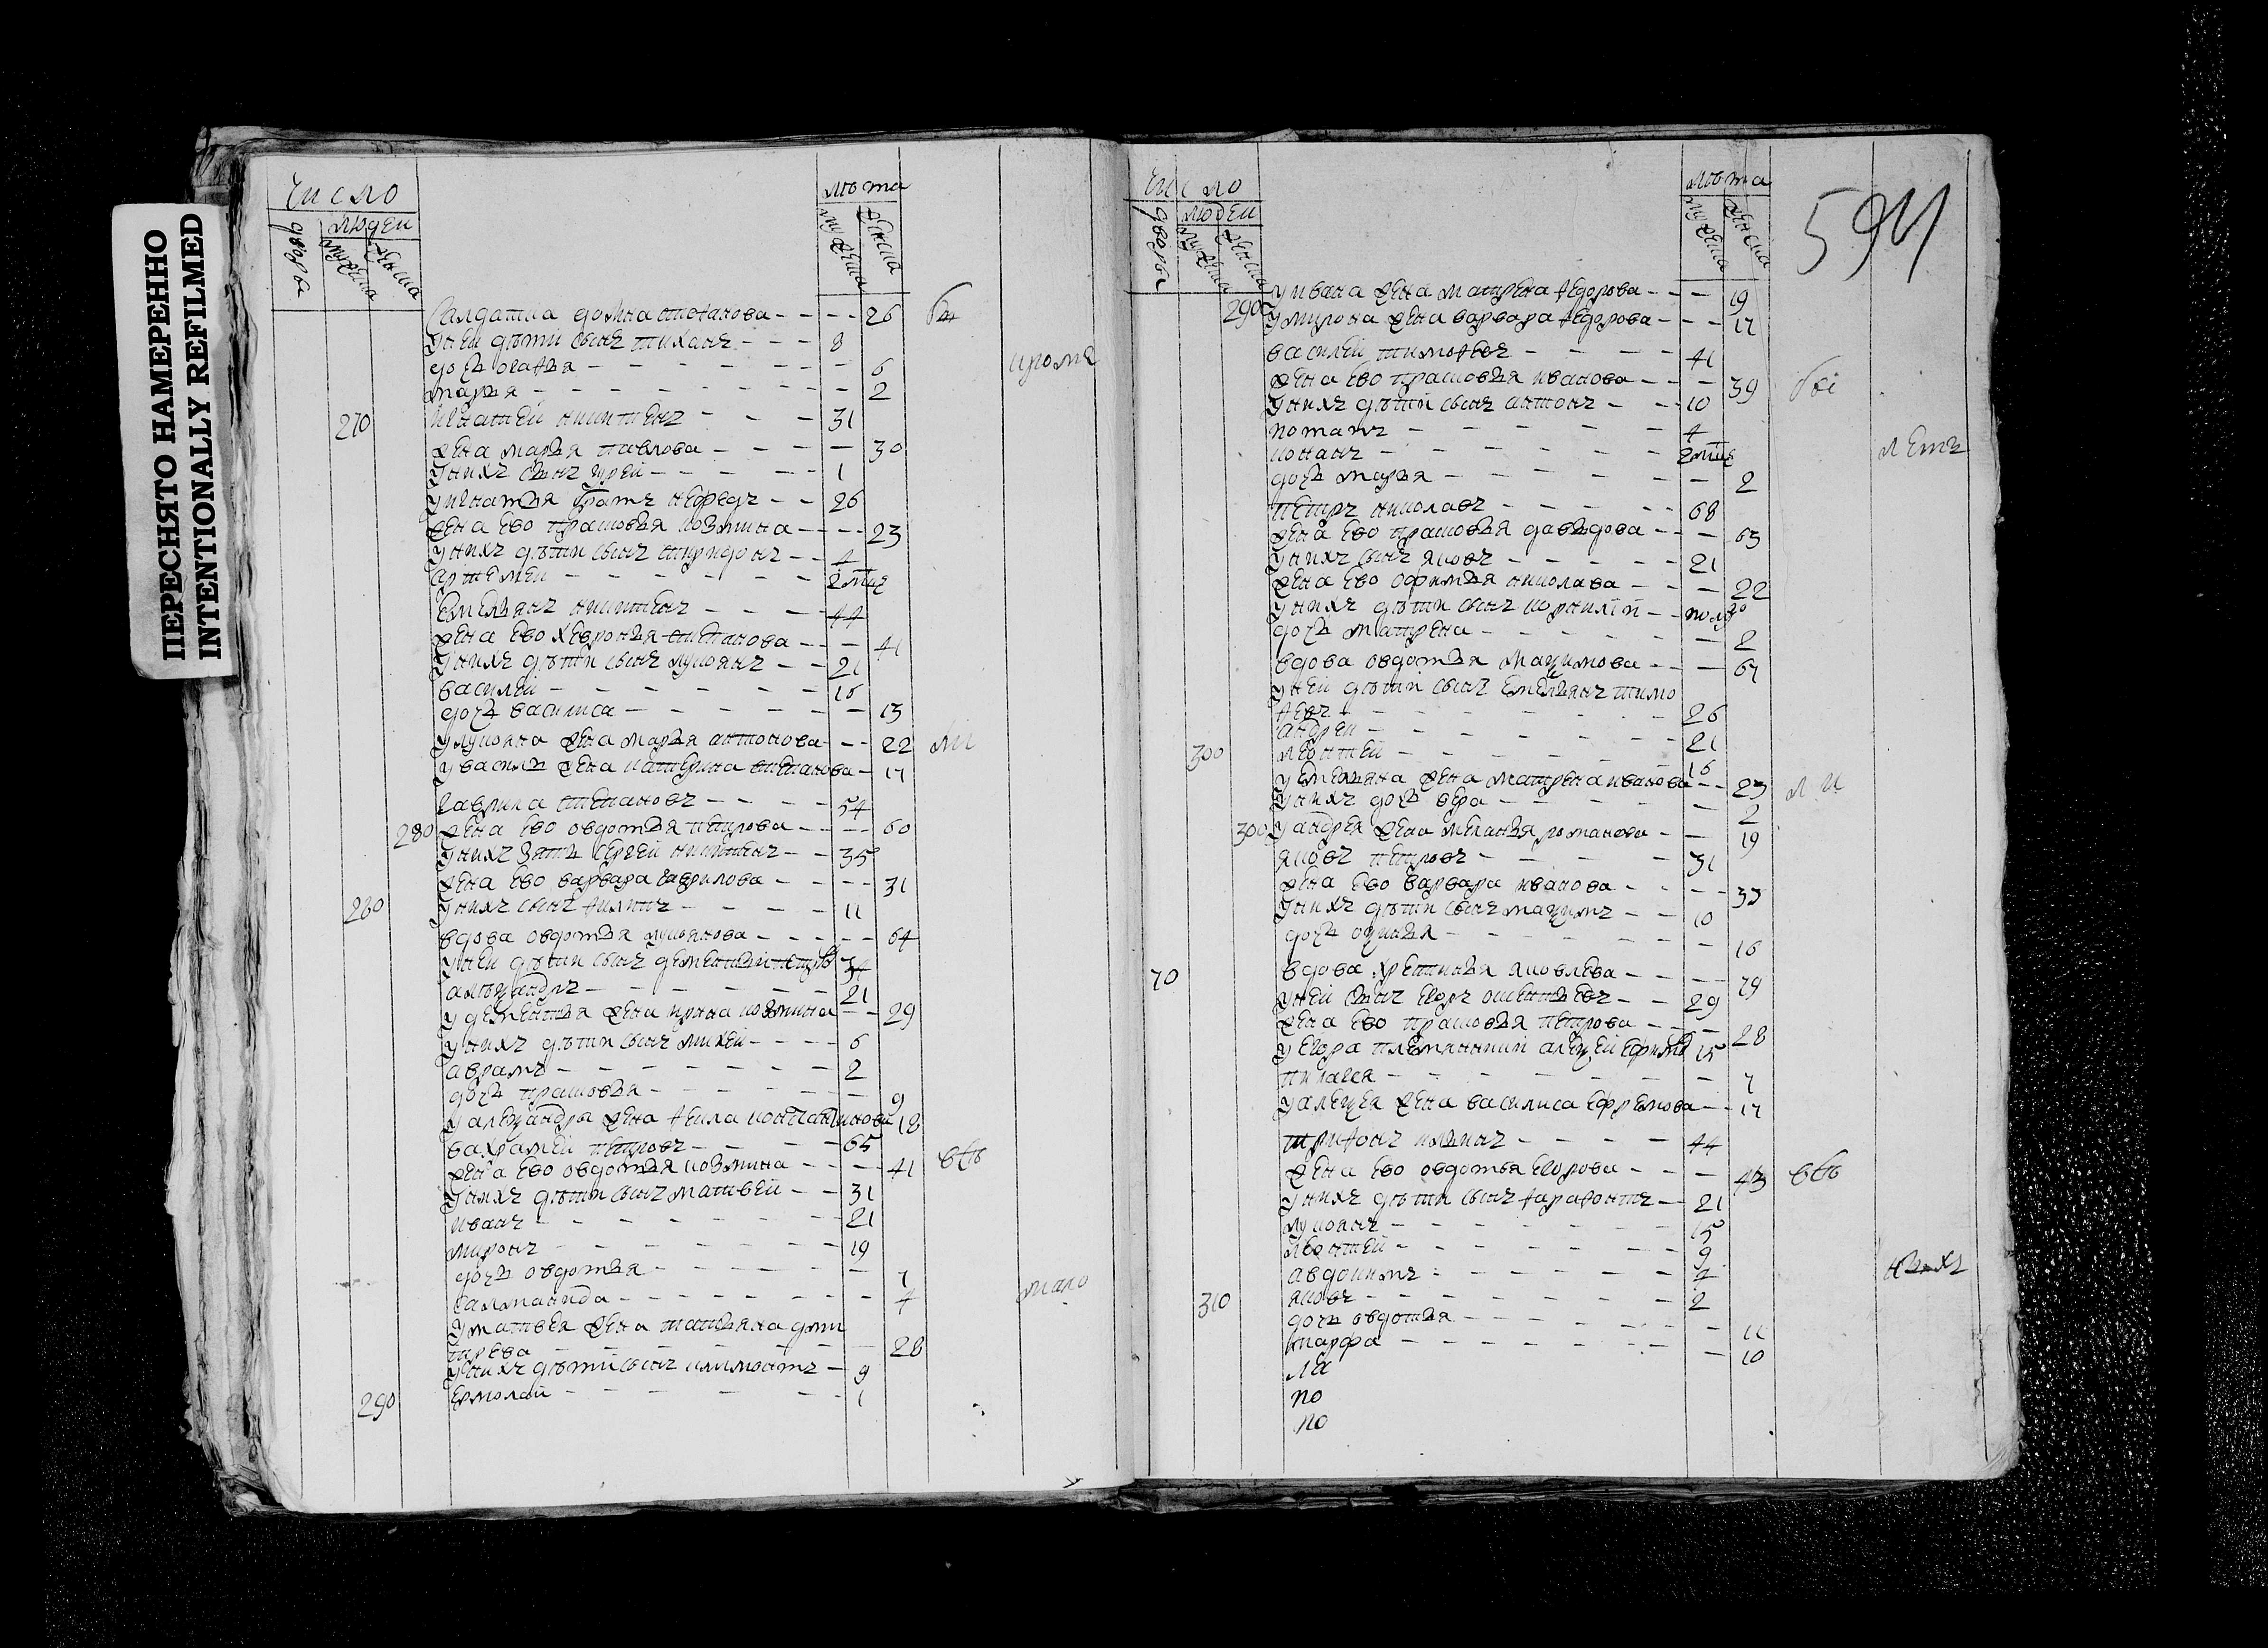 ПЕРЕСНЯТО НАМЕРЕННО
INTENTIONALLY REFILMED
Число
лѣта
дворовъ
людеи
мужеска
женска
мужеска
женска
Салдатка домна - - - - 26
у неи дѣти сынъ тиханъ - - - 8
дочь агафья - - - - 6
кроме
марья - - - - 2
270 игнатеи никитинъ - - - 31
жена марья павлова - - - 30
у нихъ сынъ гурей - - - 1
у игнатья братъ нефедъ - - 26
жена ево прасковья козмина - - - - 23
у нихъ дѣти сынъ спиридонъ - - 4
артемеи - - - -
Емельянъ никитинъ - - - 44
жена ево хевронья степанова - - - 41
у нихъ дѣти сынъ лукьянъ - - 21
василеи - - - - 16
дочь василиса - - - - 13
у лукьяна жена марья антонова - - 22
у василья жена катерина степанова - 17
гаврила степановъ - - - - 54
280 жена ево овдотья петрова - - - - 60
у нихъ зять сергеи никитинъ - - 35
жена ево варвара гаврилова - - - - 31
280 у нихъ сынъ филипъ - - - - 11
вдова овдотья лукьянова - - - - 64
у неи дѣти сынъ дементеи петровъ 34
алеѯандръ - - - - 21
у дементья жена ирина козмина - - 29
у нихъ дѣти сынъ михеи - - - - 6
аврамъ - - - - 2
дочь прасковья - - - - 9
у алеѯандры жена фекла 18
вахрамеи петровъ - - - - 65
жена ево овдотья козмина - - - - 41
у нихъ дѣти сынъ матвеи - - 31
иванъ - - - - 21
миронъ - - - - 19
дочь овдотья - - - - 7
саломанида - - - - 4
токмо
у матвея жена татьяна дми
трева - - - - 28
у нихъ дѣти сынъ климонтъ - 9
290 ермолаи - - - - 1
Число
лѣта
594
дворовъ
людеи
мужеска
женска
мужеска
женска
у ивана жена матрена федорова - - - 19
290 у мирона жена варвара федорова - - - 17
василеи тимофеевъ - - - - 41
жена ево прасковья иванова - - - 39
у нихъ дѣти сынъ антонъ - - - 10
потапъ - - - - 4
кононъ - - - -
летъ
дочь марья - - - - 2
петръ николаевъ - - - - 68
жена ево прасковья давыдова - - - 63
у нихъ сынъ яковъ - - - - 21
жена ево офимья николаева - - - 22
у нихъ дѣти сынъ корнилеи - -
дочь матрена - - - - 2
вдова овдотья маѯимова - - - 67
у неи дѣти сынъ Емельянъ тимо
феевъ - - - - 26
андреи - - - - 21
300 леонтеи - - - - 16
у емельяна жена матрена иванова - - 23
у нихъ дочь вера - - - - 2
300 у андрея жена меланья романова - - 19
яковъ петровъ - - - - 31
жена ево варвара иванова - - - - 33
у нихъ дѣти сынъ маѯимъ - - 10
дочь оѯинья - - - - 16
70 вдова хрестинья яковлева - - - - 79
у неи сынъ егоръ - - 29
жена ево прасковья петрова - - - 28
у егора племянникъ алеѯеи 15
пилагея - - - - 7
у алеѯея жена василиса ефремова - - 17
трифонъ ильинъ - - - - 44
жена ево овдотья егорова - - - 43
у нихъ дѣти сынъ фарафонтъ - - 21
лукьянъ - - - - 15
леонтеи - - - - 9
авдокимъ - - - -
310 яковъ - - - - 2
дочь овдотья - - - - 11
марфа - - - - 10
по
по